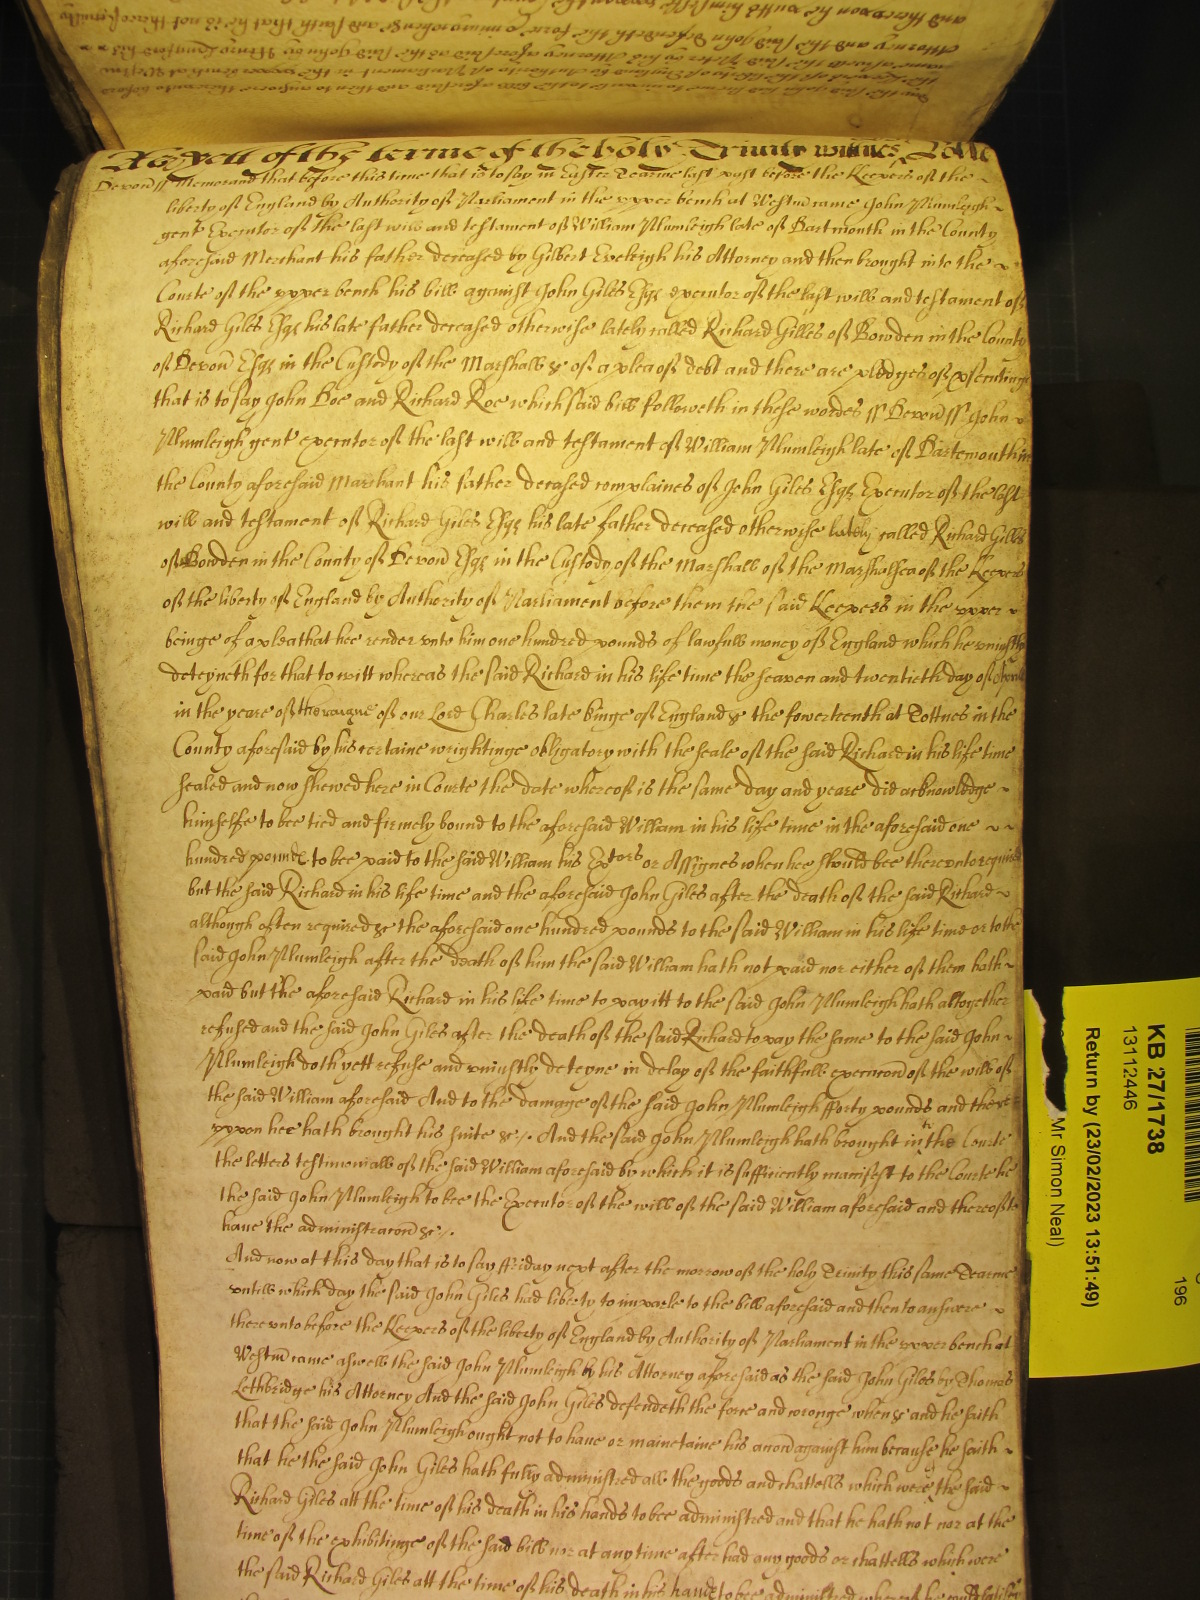 As yett of the terme of the holy Trinity witnes
Devon ss Memorand that before this time that is to say in Easter Tearme last past before the Keepers of the
liberty of England by Authority of Parliament in the upper bench at Westm came John Plumleigh
gent Executor of the last will and testament of William Plumleigh late of Dartmouth in the County
aforesaid Merchant his father deceased by Gilbert Eveleigh his Attorney and then brought into the
Courte of the upper bench his bill against John Giles Esqr executor of the last will and testament of
Richard Giles Esqr his late father deceased otherwise lately called Richard Gilles of Bowden in the County
of Devon Esqr in the Custody of the Marshall &c of a plea of debt and there are pledges of psecutinge
that is to say John Doe and Richard Roe which said bill followeth in these wordes ss Devon ss John
Plumleigh gent executor of the last will and testament of William Plumleigh late of Dartemouth in
the County aforesaid Marchant his father deceased complaines of John Giles Esqr Executor of the last
will and testament of Richard Giles Esqr his late father deceased otherwise lately called Richard Gilles
of Bowden in the County of Devon Esqr in the Custody of the Marshall of the Marshalsea of the Keepers
of the liberty of England by Authority of Parliament before them the said Keepers in the upper
beinge of a plea that hee render unto him one hundred pounds of lawfull money of England which he uniustly
deteyneth for that to witt whereas the said Richard in his life time the seaven and twentieth day of
in the yeare of the raigne of our Lord Charles late kinge of England &c the fowerteenth at Tottnes in the
County aforesaid by his certaine wrightinge obligatory with the seale of the said Richard in his life time
sealed and now shewed here in Courte the date whereof is the same day and yeare did acknowledge
himselfe to bee tied and firmely bound to the aforesaid William in his life time in the aforesaid one
hundred pounds to bee paid to the said William his Extors or Assignes when hee should bee thereunto required
but the said Richard in his life time and the aforesaid John Giles after the death of the said Richard
although often required &c the aforesaid one hundred pounds to the said William in his life time or to the
said John Plumleigh after the death of him the said William hath not paid nor either of them hath
paid but the aforesaid Richard in his life time to pay itt to the said John Plumleigh hath altogether
refused and the said John Giles after the death of the said Richard to pay the same to the said John
Plumleigh doth yett refuse and uniustly deteyne in delay of the faithfull execucon of the will of
the said William aforesaid And to the damage of the said John Plumleigh fforty pounds and there
uppon hee hath brought his suite &c. And the said John Plumleigh hath brought in th the Courte
the letters testimoniall of the said William aforesaid by which it is sufficiently manifest to the Courte he
the said John Plumleigh to bee the Executor of the will of the said William aforesaid and thereof to
have the administracon &c.
And now at this day that is to say ffriday next after the morrow of the holy Trinity this same Tearme
untill which day the said John Giles had liberty to imparle to the bill aforesaid and then to answere
thereunto before the Keepers of the liberty of England by Authority of Parliament in the upper bench at
Westm came aswell the said John Plumleigh by his Attorney aforesaid as the said John Giles by Thomas
Lethbridge his Attorney And the said John Giles defendeth the force and wronge when &c and he saith
that the said John Plumleigh ought not to have or mainetaine his accon against him because he saith
that he the said John Giles hath fully administred all the goods and chattells which were the said
Richard Giles att the time of his death in his hands to bee administred and that he hath not nor at the
time of the exhibitinge of the said bill nor at any time after had any goods or chattells which were
the said Richard Giles att the time of his death in his hands to bee administred whereof he
KB 27/1738
13112446
Return by (23/02/2023 13:51:49)
Mr Simon Neal)
196